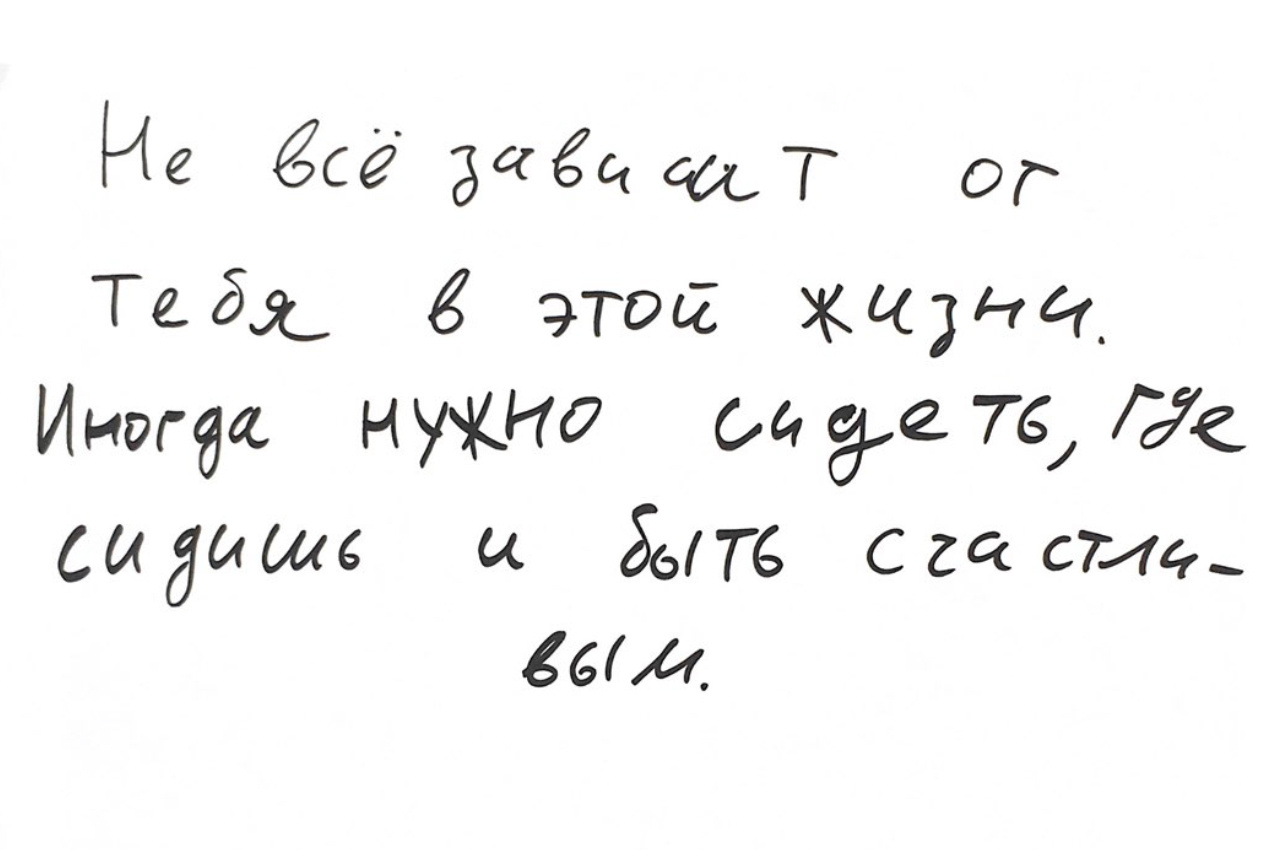 Не всё зависит от
тебя в этой жизни.
Иногда нужно сидеть, где
сидишь и быть счастли-
вым.